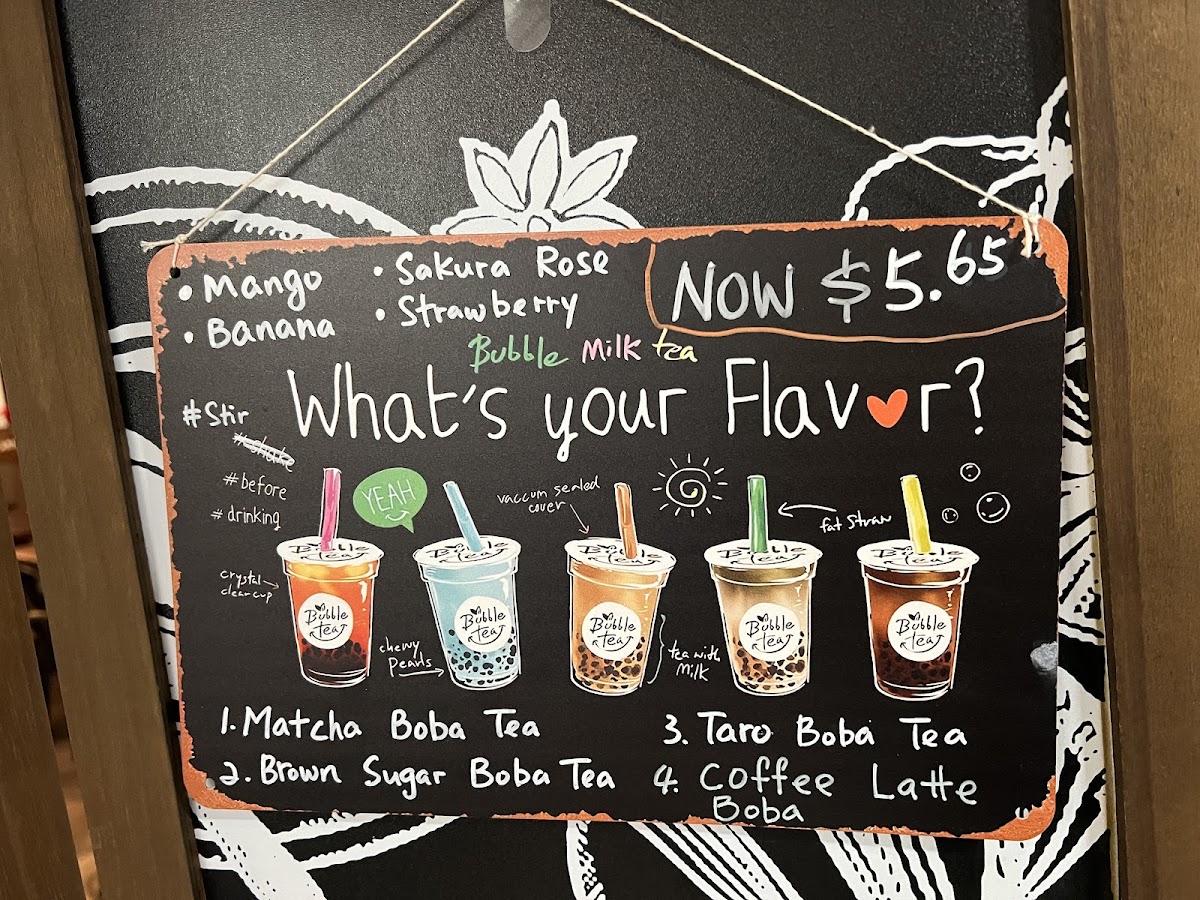 • Mango
• Banana
• Sakura Rose
• Strawberry
NOW $5.65
Bubble Milk tea
What's your Flavor?
#Stir
# before
# drinking
YEAH
vaccum sealed
cover
fat Straw
crystal
clear cup
chewy
Pearls
tea with
Milk
Bubble
Tea
Bubble
Tea
Bubble
Tea
Bubble
Tea
Bubble
Tea
Bubble
tea
Bubble
tea
Bubble
tea
Bubble
tea
Bubble
tea
1. Matcha Boba Tea
2. Brown Sugar Boba Tea
3. Taro Boba Tea
4. Coffee Latte
Boba